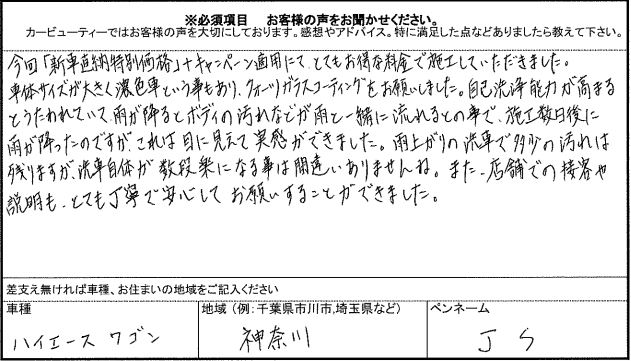 ※必須項目　お客様の声をお聞かせください。
カービューティーではお客様の声を大切にしております。感想やアドバイス。特に満足した点などありましたら教えて下さい。
今回「新車直納特別価格」+キャンペーン適用にて、とてもお得な料金で施工していただきました。
車体サイズが大きく濃色車という事もあり、クォーツガラスコーティングをお願いしました。自己洗浄能力が高まる
とうたわれていて、雨が降るとボディの汚れなどが雨と一緒に流れるとの事で、施工数日後に
雨が降ったのですが、これは目に見えて実感ができました。雨上がりの洗車で多少の汚れは
残りますが、洗車自体が数段楽になる事は間違いありませんね。また、店舗での接客や
説明も、とても丁寧で安心してお願いすることができました。
差支え無ければ車種、お住まいの地域をご記入ください
車種　地域（例:千葉県市川市,埼玉県など）　ペンネーム
ハイエース ワゴン　神奈川　J S